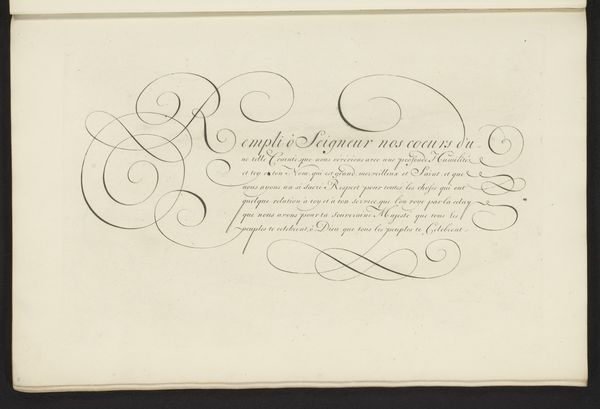 Rempli ô Seigneur nos coeurs d'u-
ne telle Crainte que nous revérions avec une profonde Humilité
et toy et ton Nom qui est grand merveilleux et Saint et que
nous ayons un si sacré Respect pour toutes les choses qui ont
quelque relation a toy et a ton service que l'on voye par la celuy
que nous avons pour ta souveraine Majesté que tous les
peuples te celebrent, ô Dieu que tous les peuples te Celebrent